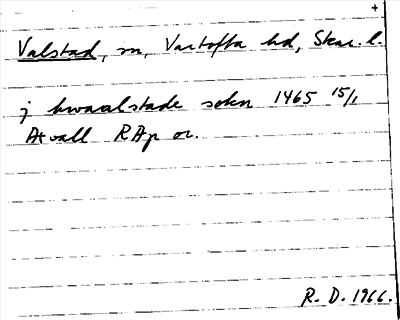 +
Valstad, sn, Vartofta hd, Skar. l.
j hwaalstade sokn 1465 15/1
Atvall RAp or.
R. D. 1966.